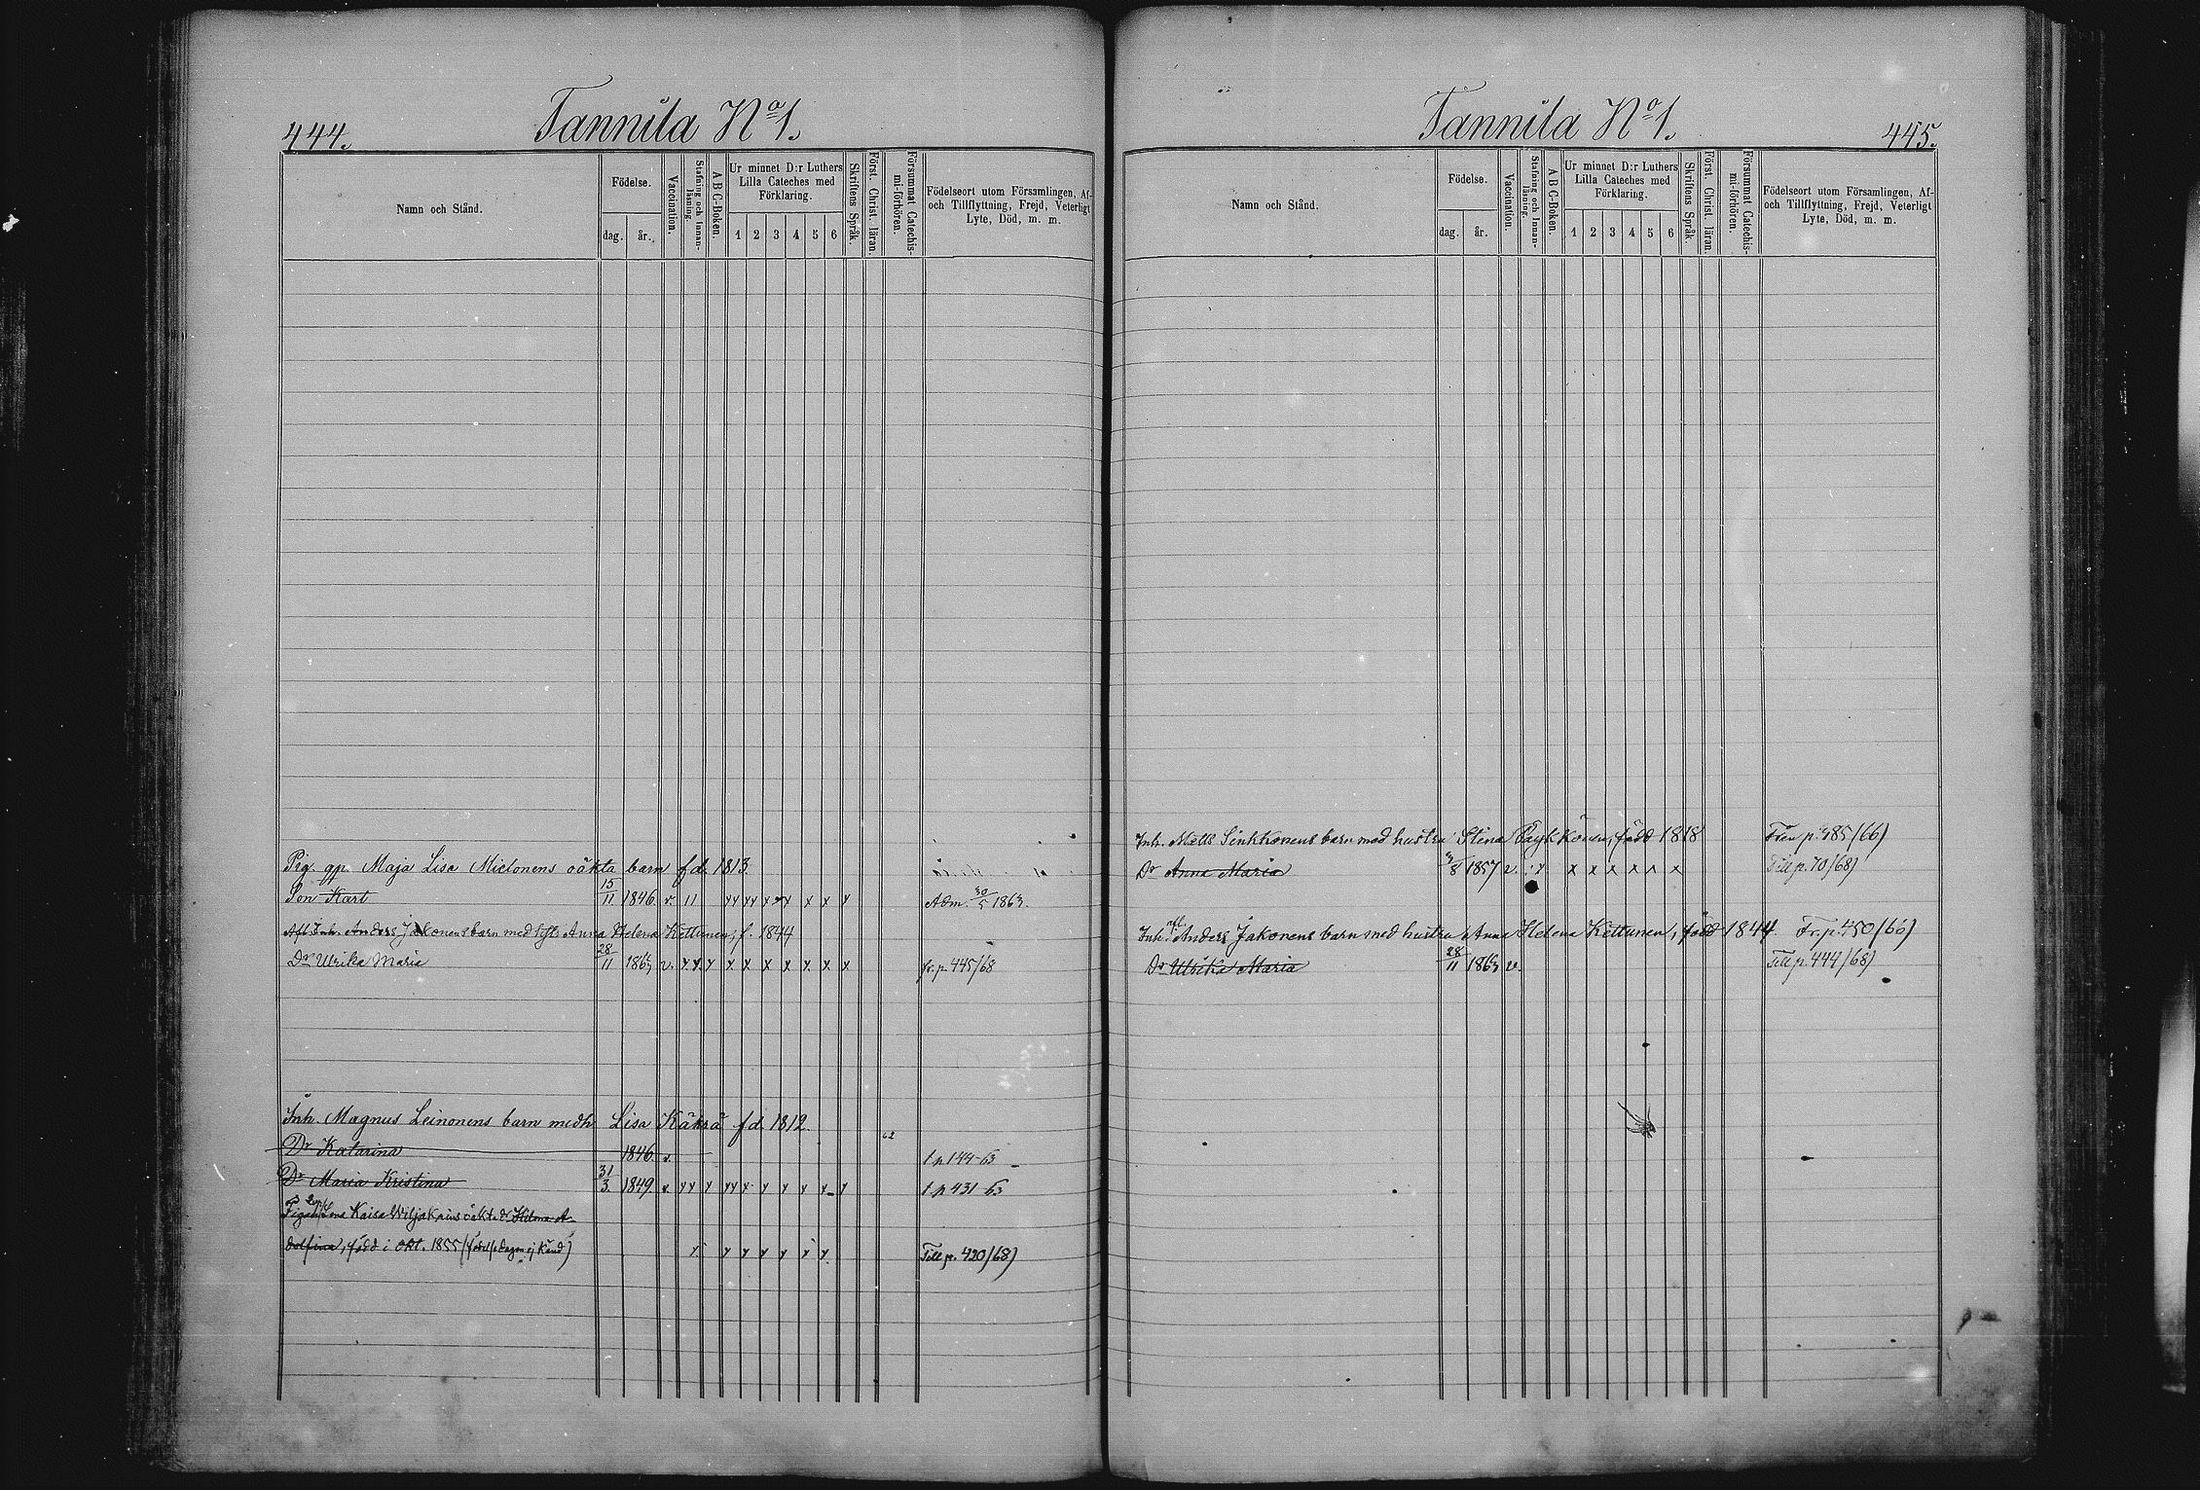 444. Tannila No 1.
Namn och Stånd.
Födelse.
dag. år.
Vaccination.
Stafning och Innanläsning.
A B C-Boken.
Ur minnet D:r Luthers Lilla Cateches med Förklaring.
1 2 3 4 5 6
Skriftens Språk.
Först. Christ. läran.
Försummat Catechismi-förhören.
Födelseort utom Församlingen, Af-
och Tillflyttning, Frejd, Veterligt
Lyte, Död, m. m.
Pig. gp. Maja Lisa Mictonens oäkta barn fd. 1813.
Son Karl 15/11 1846. v. 11 yy yy x y x x y Adm. 30/5 1863.
Afl. Inh. Anders Jakonens barn med Anna Helena Kettunen, f. 1844
Dr Ulrika Maria 28/11 1863 v. y y y x x x x x x x fr. p. 445/68
Inh. Magnus Leinonens barn medh Lisa Käkrä fd. 1812.
62
Dr Katarina 1846. v. t p 144-63
Dr Maria Kristina 31/3. 1849. v. yy y yy y y y y y t p 431 63
Lena Kaisa oäkt. dr Helena A-
dolfina, född i okt. 1855 (födelsedagen ej känd) y y y y y y y Till p. 420/68)
Tannila No 1. 445.
Namn och Stånd.
Födelse.
dag. år.
Vaccination.
Stafning och Innanläsning.
A B C-Boken.
Ur minnet D:r Luthers Lilla Cateches med Förklaring.
1 2 3 4 5 6
Skriftens Språk.
Först. Christ. läran.
Försummat Catechismi-förhören.
Födelseort utom Församlingen, Af-
och Tillflyttning, Frejd, Veterligt
Lyte, Död, m. m.
Inh. Matts Sinkkonens barn med hustru Stina född 1818 p. 185/66)
Dr Anna Maria 1857 v. y x x x x x x Till p. 70/68)
Inh. Anders Jakonens barn med hustru Anna Helena Kettunen, född 1844 Fr. p. 450/66)
Dr Ulrika Maria 28/11 1863 v. Till p. 444/68)